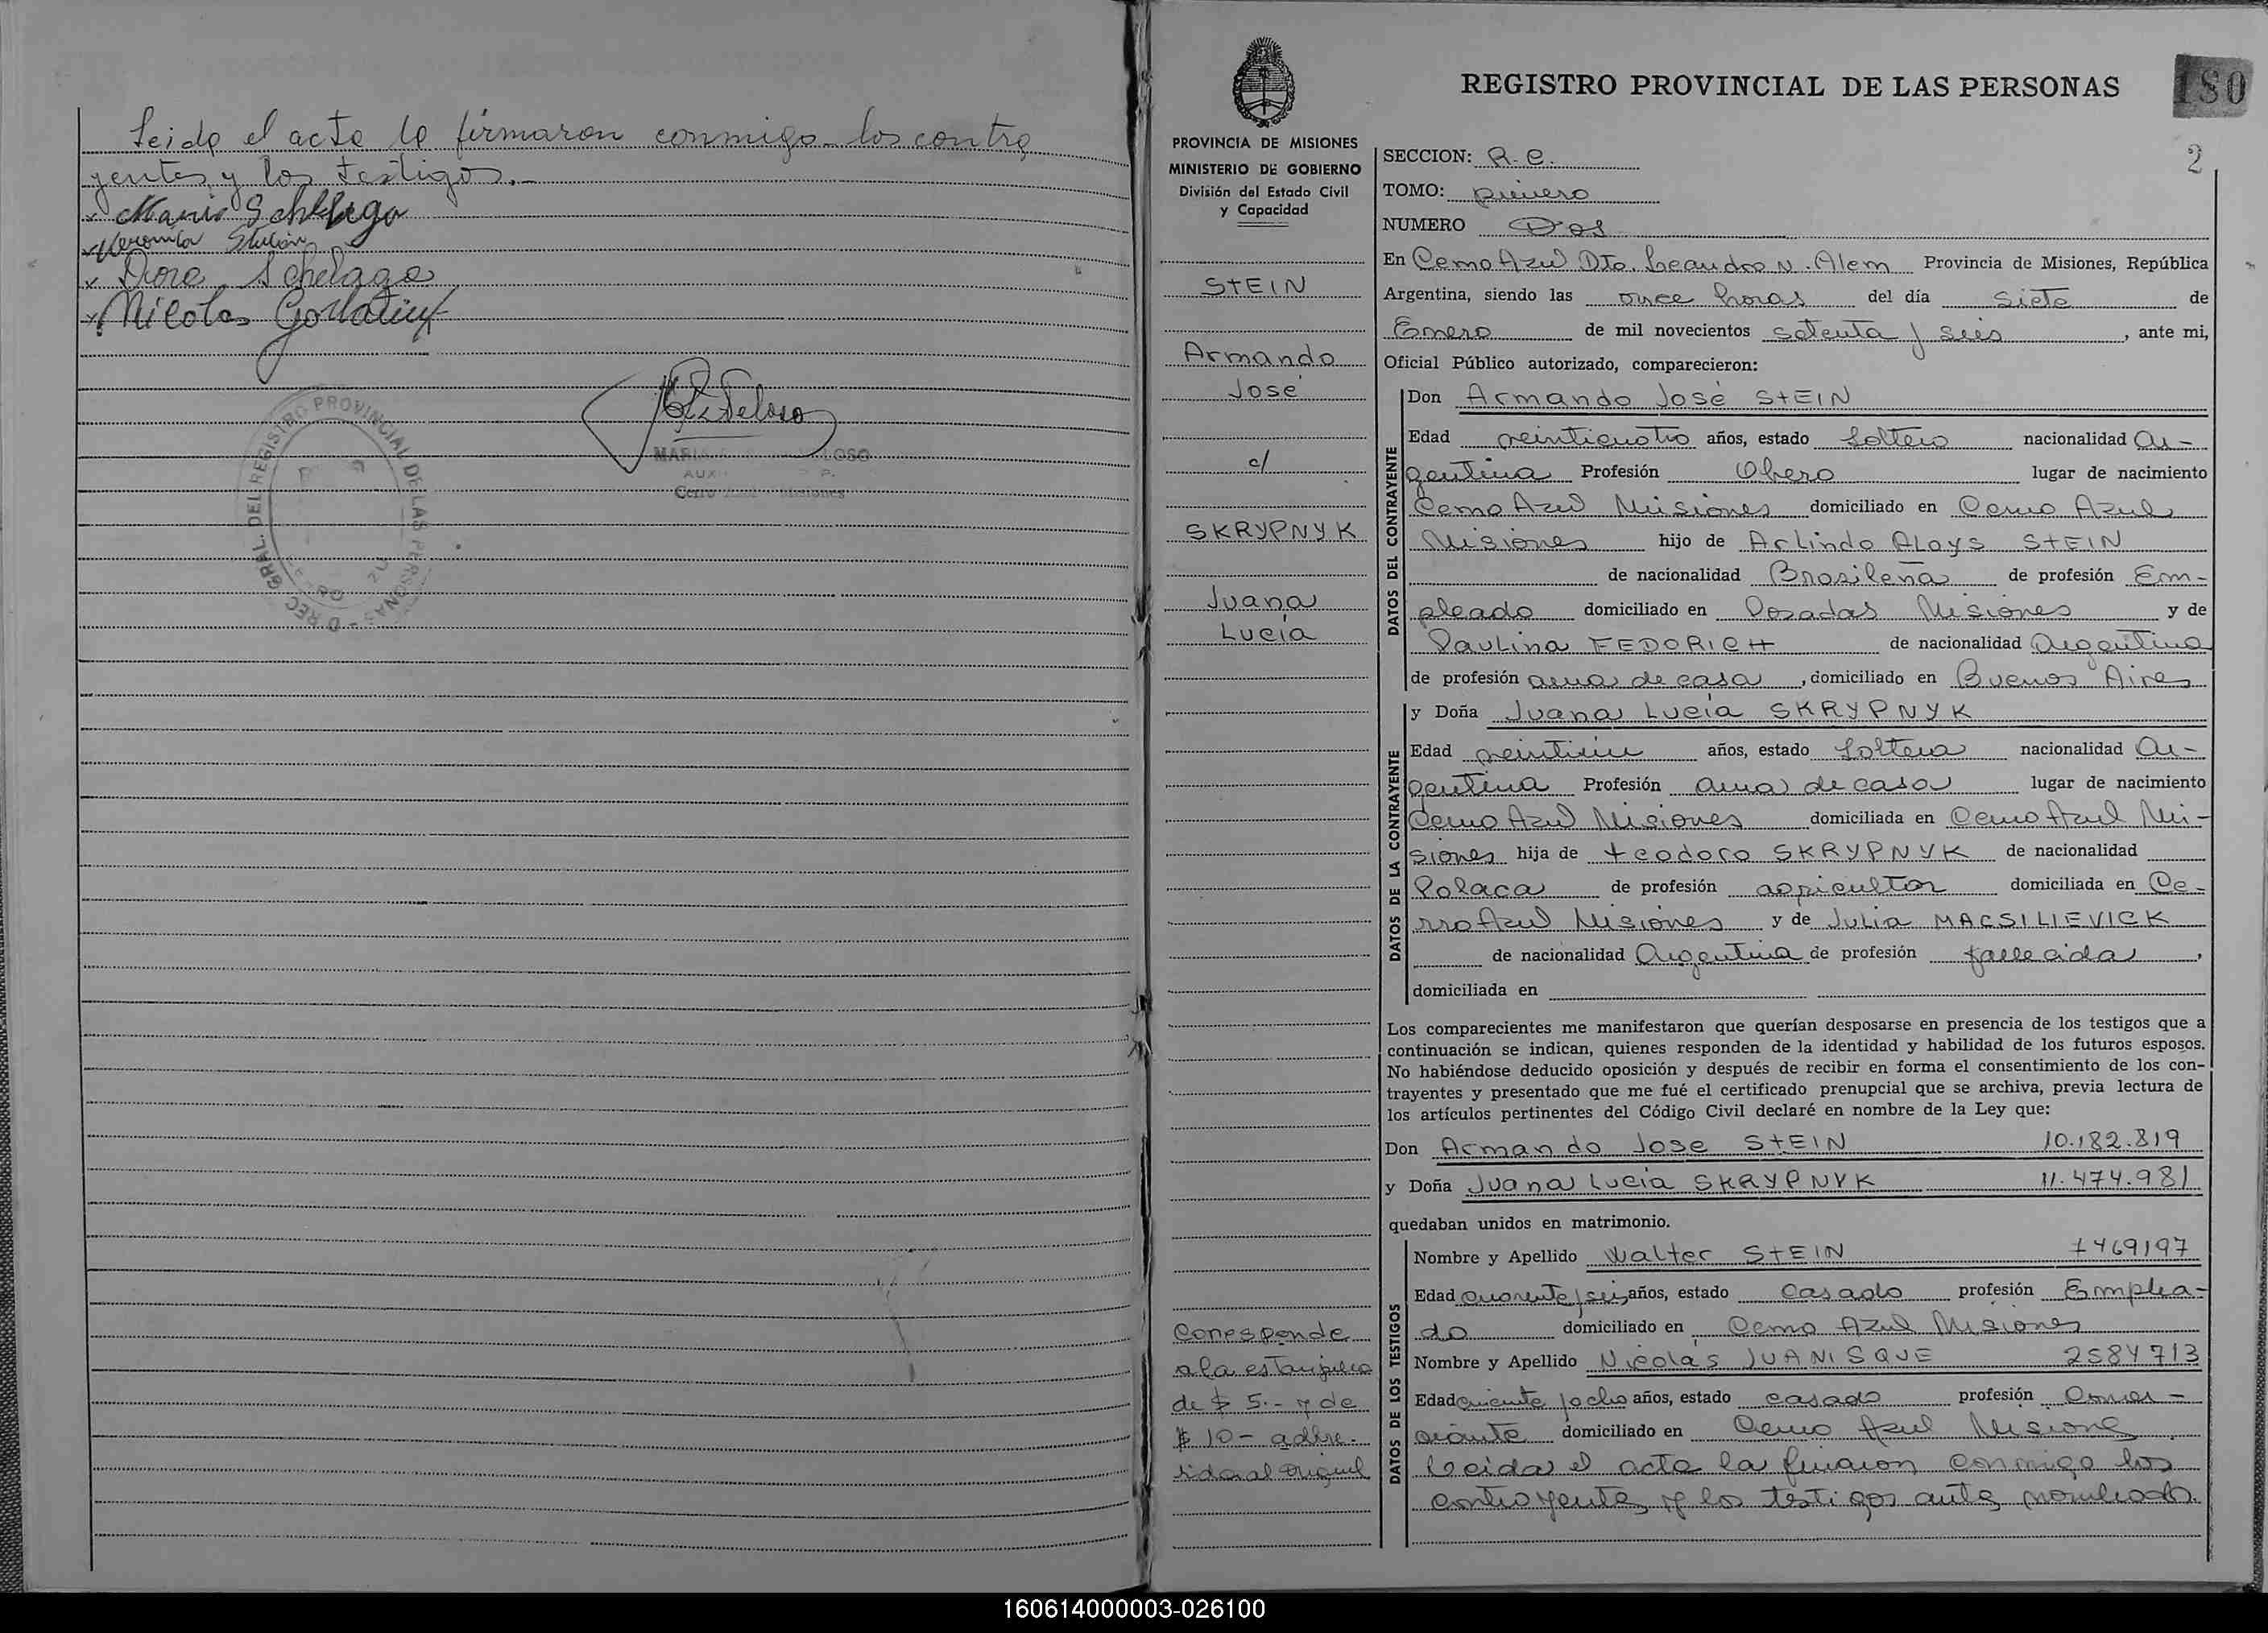 Leida el acta la firmaron conmigo los contra
yentes y los testigos.-
Dora Schelaga
Nicolas
DIREC GRAL. DEL REGISTRO PROVINCIAL DE LAS PERSONAS
Cerro Azul - Misiones
PROVINCIA DE MISIONES
MINISTERIO DE GOBIERNO
División del Estado Civil
y Capacidad
STEIN
Armando
José
c/
SKRYPNYK
Juana
Lucía
Corresponde
a la estampilla
de $ 5.- y de
$ 10 - adhe-
rida al original
REGISTRO PROVINCIAL DE LAS PERSONAS
180
2
SECCION: R. C.
TOMO: primero
NUMERO Dos
En Cerro Azul Dto. Leandro N. Alem Provincia de Misiones, República
Argentina, siendo las once horas del día siete de
Enero de mil novecientos setenta y seis, ante mi,
Oficial Público autorizado, comparecieron:
DATOS DEL CONTRAYENTE
Don Armando José STEIN
Edad veinticuatro años, estado soltero nacionalidad Ar-
gentina Profesión Obrero lugar de nacimiento
Cerro Azul Misiones domiciliado en Cerro Azul
Misiones hijo de Arlindo Aloys STEIN
de nacionalidad Brasileña de profesión Em-
pleado domiciliado en Posadas Misiones y de
Paulina FEDORICH de nacionalidad Argentina
de profesión ama de casa, domiciliado en Buenos Aires
DATOS DE LA CONTRAYENTE
y Doña Juana Lucía SKRYPNYK
Edad veintiún años, estado soltera nacionalidad Ar-
gentina Profesión ama de casa lugar de nacimiento
Cerro Azul Misiones domiciliada en Cerro Azul Mi-
siones hija de Teodoro SKRYPNYK de nacionalidad
Polaca de profesión agricultor domiciliada en Ce-
rro Azul Misiones y de Julia MACSILIEVICK
de nacionalidad Argentina de profesión fallecida,
domiciliada en
Los comparecientes me manifestaron que querían desposarse en presencia de los testigos que a
continuación se indican, quienes responden de la identidad y habilidad de los futuros esposos.
No habiéndose deducido oposición y después de recibir en forma el consentimiento de los con-
trayentes y presentado que me fué el certificado prenupcial que se archiva, previa lectura de
los artículos pertinentes del Código Civil declaré en nombre de la Ley que:
Don Armando Jose STEIN 10.182.819
y Doña Juana Lucia SKRYPNYK 11.474.981
quedaban unidos en matrimonio.
DATOS DE LOS TESTIGOS
Nombre y Apellido Walter STEIN 7469197
Edad cuarenta y seis años, estado casado profesión Emplea-
do domiciliado en Cerro Azul Misiones
Nombre y Apellido Nicolás JUANISQUE 2584713
Edad y ocho años, estado casado profesión Comer-
ciante domiciliado en Cerro Azul Misiones
Leida el acta la firmaron conmigo los
contrayentes y los testigos ante nombrados.
160614000003-026100